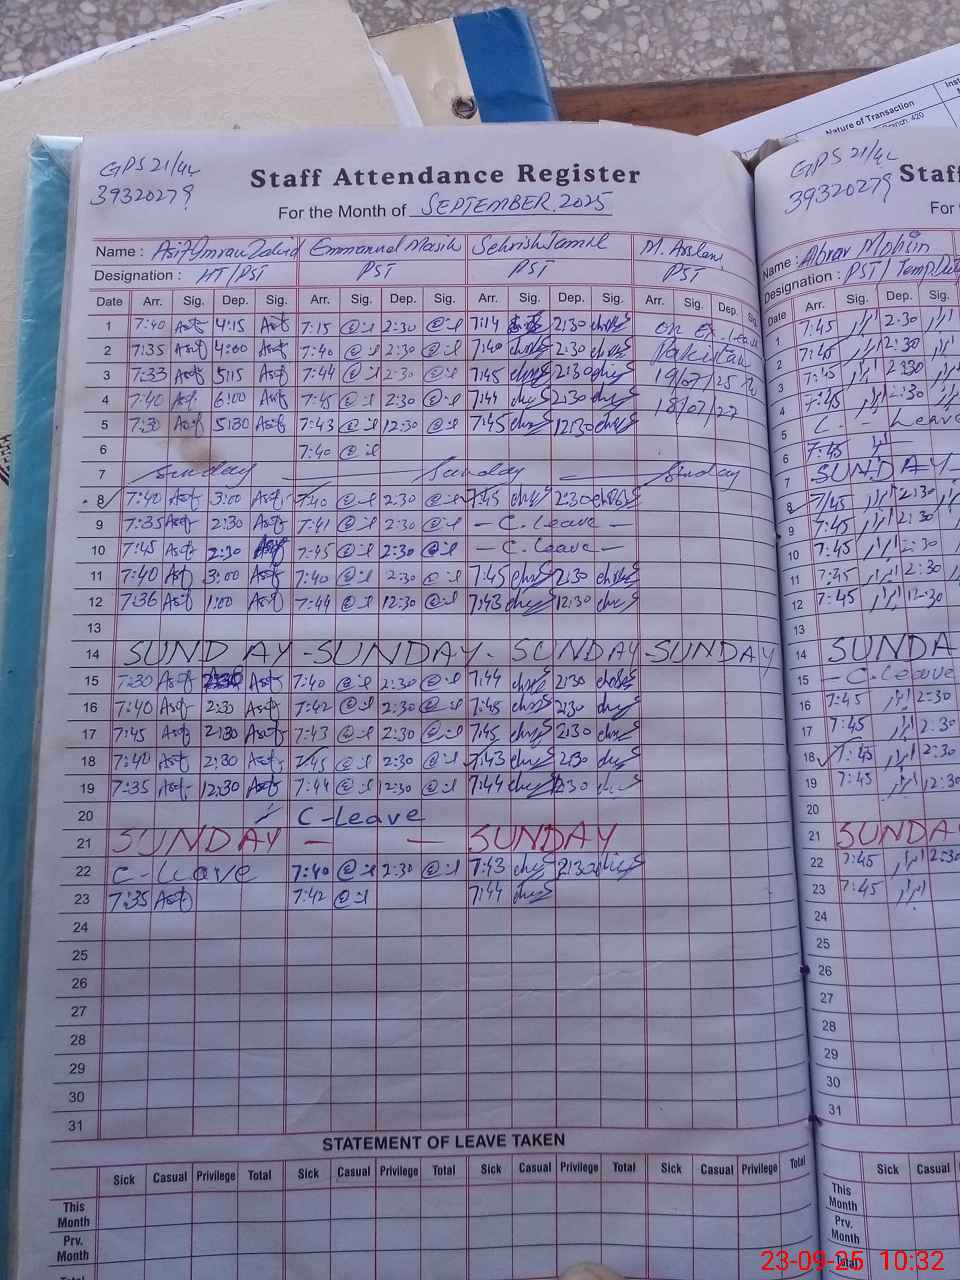 Nature of Transaction
GPS 21/4L
39320279
Staff Attendance Register
For the Month of SEPTEMBER.2025
Name : Asif Imran Zahid Emmanuel Masih Sehrish Jamil M. Arslan
Designation : HT/PST PST PST PST
Date Arr. Sig. Dep. Sig. Arr. Sig. Dep. Sig. Arr. Sig. Dep. Sig. Arr. Sig. Dep. Sig.
1 7:40 Asif 4:15 Asif 7:15 2:30 7:14 2:30 on Ex. Leave
2 7:35 Asif 4:00 Asif 7:40 2:30 7:40 2:30 Pakistan
3 7:33 Asif 5:15 Asif 7:44 2:30 7:45 2:30 19/07/25 to
4 7:40 Asif 6:00 Asif 7:45 2:30 7:44 2:30 18/07/27
5 7:30 Asif 5:30 Asif 7:43 12:30 7:45 12:30
6 7:40
7 Sunday Sunday Sunday
8 7:40 Asif 3:00 Asif 7:40 2:30 7:45 2:30
9 7:35 Asif 2:30 Asif 7:41 2:30 - C. Leave -
10 7:45 Asif 2:30 Asif 7:45 2:30 - C. Leave -
11 7:40 Asif 3:00 Asif 7:40 2:30 7:45 2:30
12 7:36 Asif 1:00 Asif 7:44 12:30 7:43 12:30
13
14 SUNDAY - SUNDAY - SUNDAY - SUNDAY
15 7:30 Asif Asif 7:40 2:30 7:44 2:30
16 7:40 Asif 2:30 Asif 7:42 2:30 7:45 2:30
17 7:45 Asif 2:30 Asif 7:43 2:30 7:45 2:30
18 7:40 Asif 2:30 Asif 7:45 2:30 7:43 2:30
19 7:35 Asif 12:30 Asif 7:44 12:30 7:44 12:30
20 C-Leave
21 SUNDAY — — SUNDAY
22 C-Leave 7:40 2:30 7:43 2:30
23 7:35 Asif 7:42 7:44
24
25
26
27
28
29
30
31
STATEMENT OF LEAVE TAKEN
Sick Casual Privilege Total Sick Casual Privilege Total Sick Casual Privilege Total Sick Casual Privilege Total
This Month
Prv. Month
Total
GPS 21/4L
39320279
Staff
For
Name : Abrar Mohsin
Designation : PST/
Date Arr. Sig. Dep. Sig.
1 7:45 ابرار 2:30 ابرار
2 7:45 ابرار 2:30 ابرار
3 7:45 ابرار 2:30 ابرار
4 7:45 ابرار 2:30 ابرار
5 C. - Leave
6 7:45
7 SUNDAY -
8 7:45 ابرار 2:30 ابرار
9 7:45 ابرار 2:30 ابرار
10 7:45 ابرار 2:30 ابرار
11 7:45 ابرار 2:30 ابرار
12 7:45 ابرار 12:30
13
14 SUNDA
15 - C-Leave
16 7:45 ابرار 2:30
17 7:45 ابرار 2:30
18 7:45 ابرار 2:30
19 7:45 ابرار 12:30
20
21 SUNDA
22 7:45 ابرار 2:30
23 7:45 ابرار
24
25
26
27
28
29
30
31
Sick Casual
This Month
Prv. Month
Total
23-09-25 10:32